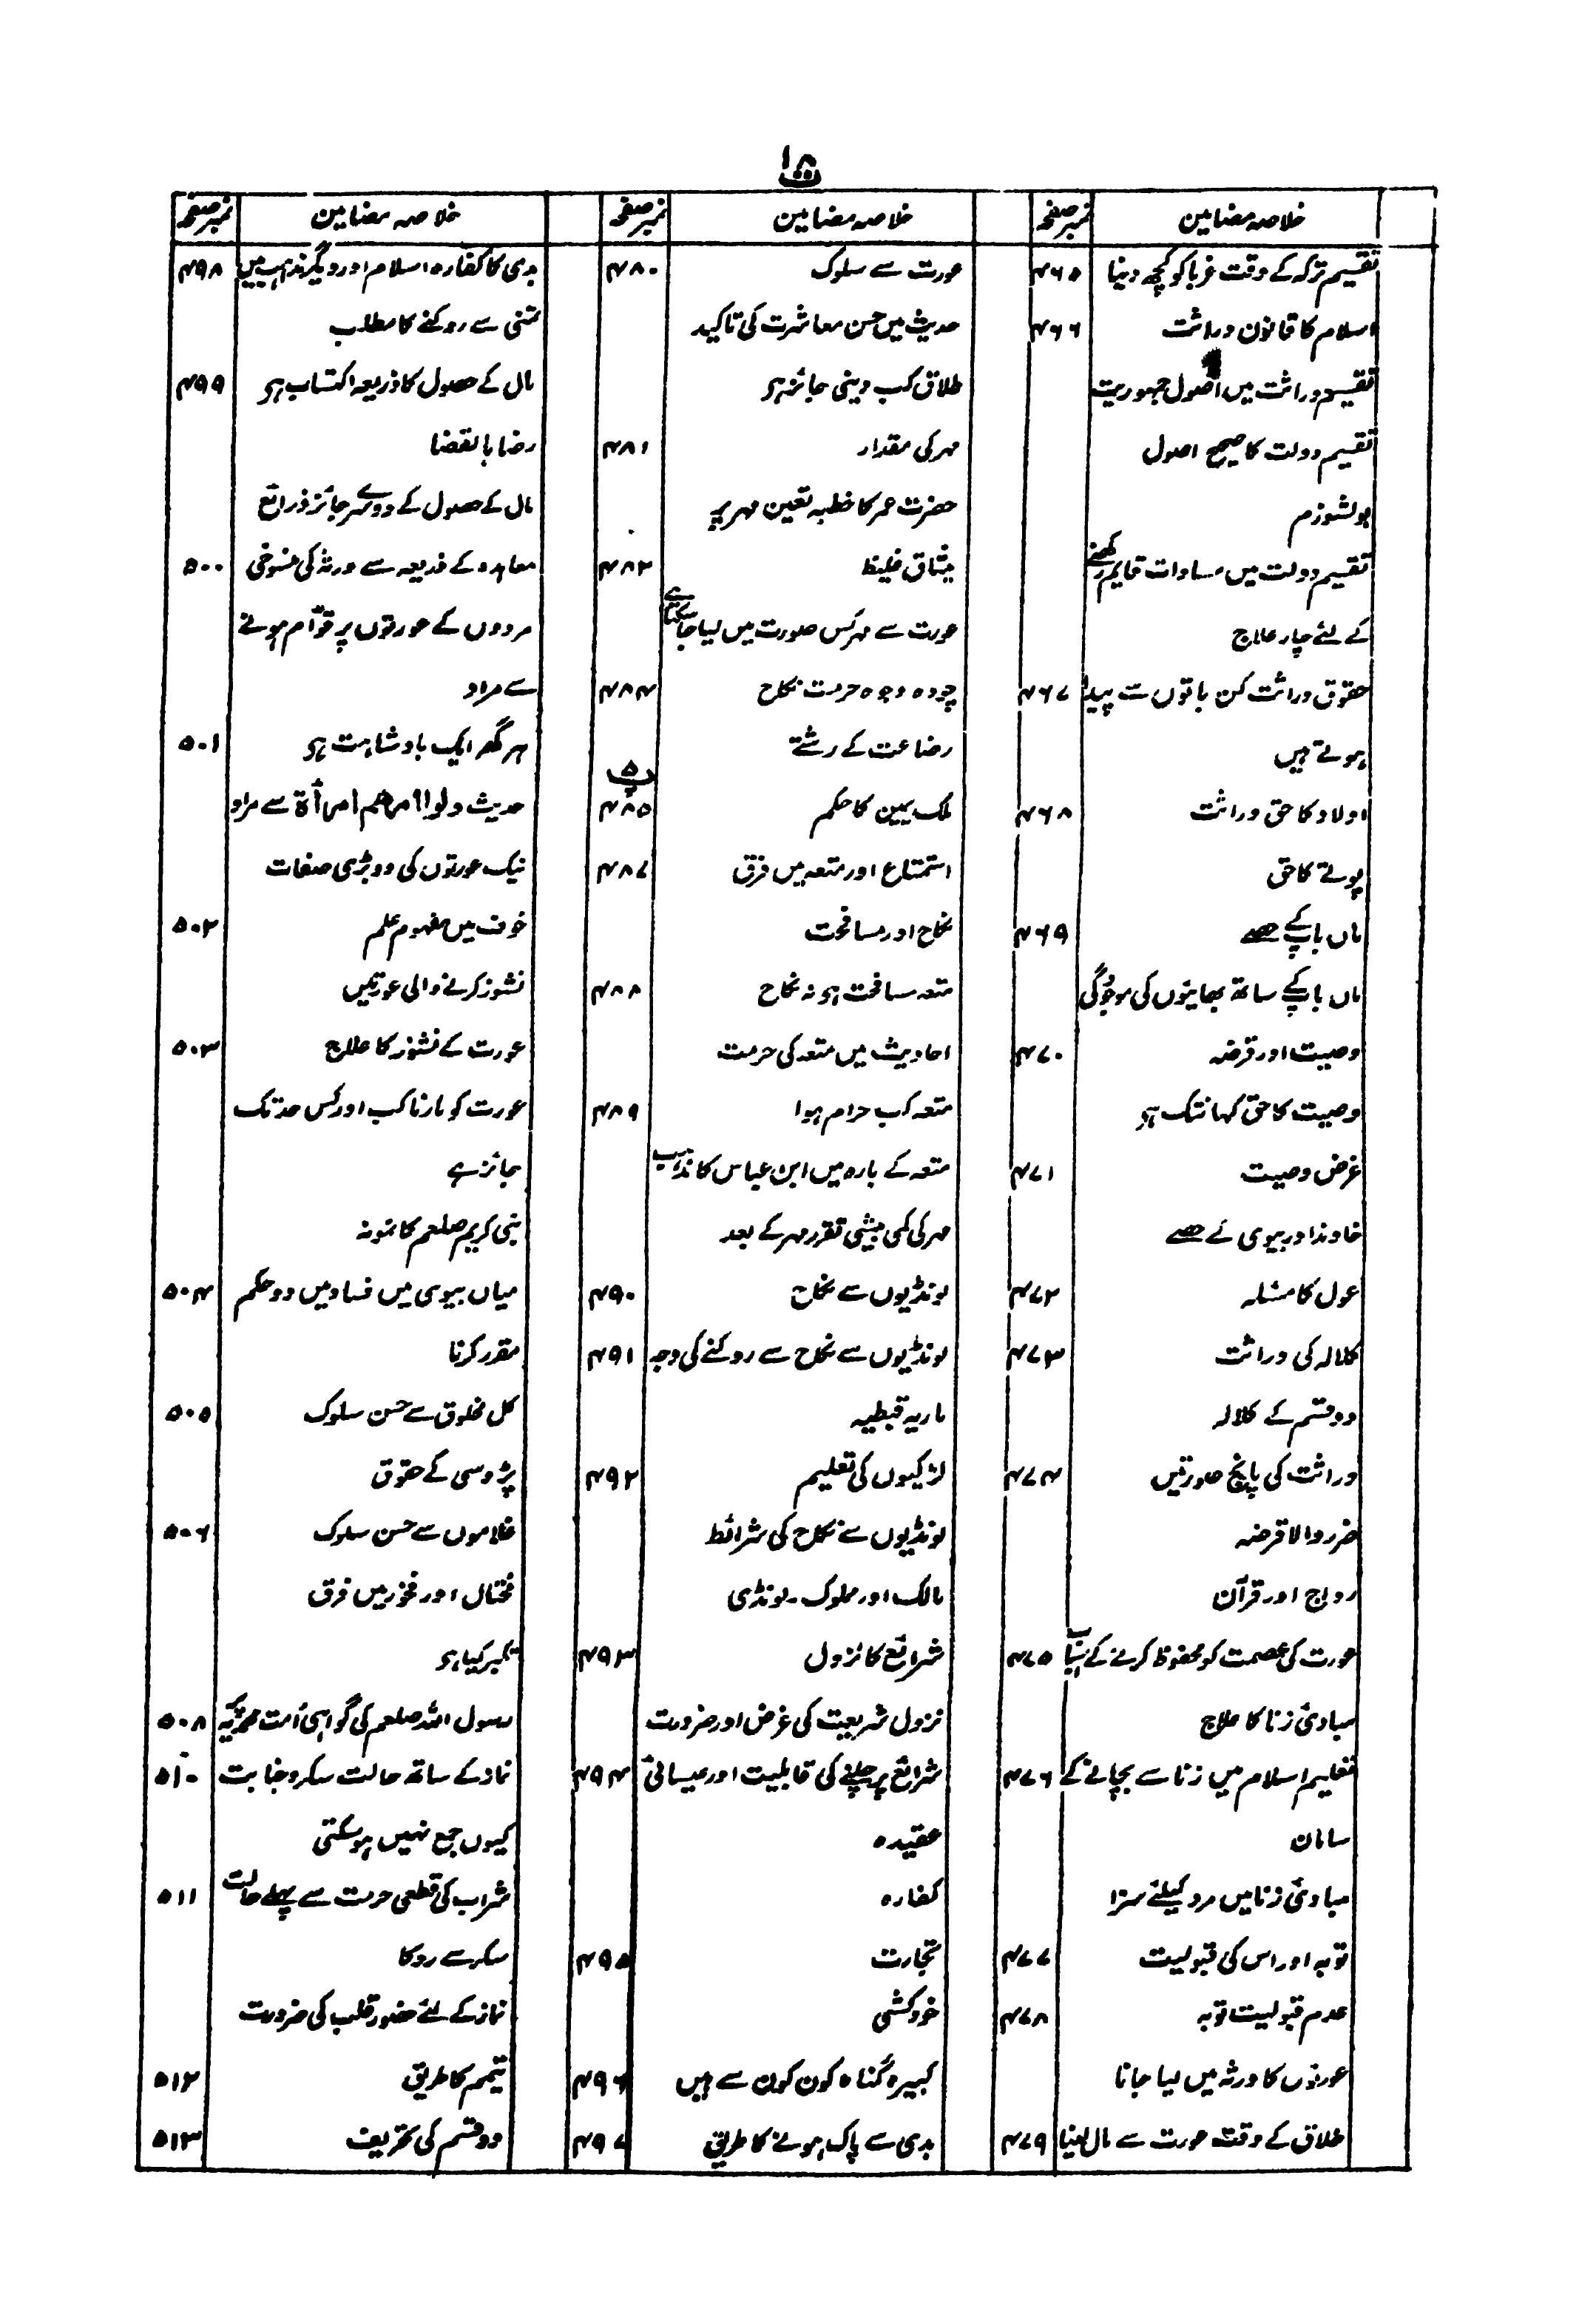 ۱۸
خلاصہ مضامین نمبر صفحہ
تقسیم ترکہ کے وقت غربا کو کچھ دینا ۴۶۵
اسلام کا قانون وراثت ۴۶۶
تقسیم وراثت میں اصول جمہوریت
تقسیم دولت کا صحیح اصول
بولشوزم
تقسیم دولت میں مساوات قایم رکھنے
کے لئے چار علاج
حقوق وراثت کن باتوں سے پیدا ۴۶۷
ہوتے ہیں
اولاد کا حق وراثت ۴۶۸
پوتے کا حق
ماں باپ کے حصے ۴۶۹
ماں باپ کے ساتھ بھایئوں کی موجودگی
وصیت اور قرضہ ۴۷۰
وصیت کا حق کہانتک ہو
غرض وصیت ۴۷۱
خاوند اور بیوی کے حصے
عول کا مسئلہ ۴۷۲
کلالہ کی وراثت ۴۷۳
دو قسم کے کلالہ
وراثت کی پانچ صورتیں ۴۷۴
ضرر والا قرضہ
رواج اور قرآن
عورت کی عصمت کو محفوظ کرنے کے اسباب ۴۷۵
مبادیٔ زنا کا علاج
تعلیم اسلام میں زنا سے بچانے کے ۴۷۶
سامان
مبادیٔ زنا میں مرد کیلئے سزا
توبہ اور اس کی قبولیت ۴۷۷
عدم قبولیت توبہ ۴۷۸
عورتوں کا ورثہ میں لیا جانا
طلاق کے وقت عورت سے مال لینا ۴۷۹
خلاصہ مضامین نمبر صفحہ
عورت سے سلوک ۴۸۰
حدیث میں حسن معاشرت کی تاکید
طلاق کب دینی جائز ہو
مہر کی مقدار ۴۸۱
حضرت عمر کا خطبہ تعین مہر پر
میثاق غلیظ ۴۸۲
عورت سے مہر کس صورت میں لیا جا سکتا ہے
چودہ وجوہ حرمت نکاح ۴۸۴
رضاعت کے رشتے
پ۵
ملک یمین کا حکم ۴۸۵
استمتاع اور متعہ میں فرق ۴۸۷
نکاح اور مسافحت
متعہ مسافحت ہو نہ نکاح ۴۸۸
احادیث میں متعہ کی حرمت
متعہ کب حرام ہوا ۴۸۹
متعہ کے بارہ میں ابن عباس کا مذہب
مہر کی کمی بیشی تقرر مہر کے بعد
لونڈیوں سے نکاح ۴۹۰
لونڈیوں سے نکاح سے روکنے کی وجہ ۴۹۱
ماریہ قبطیہ
لڑکیوں کی تعلیم ۴۹۲
لونڈیوں سے نکاح کی شرائط
مالک اور مملوک ۔ لونڈی
شرائع کا نزول ۴۹۳
نزول شریعت کی غرض اور ضرورت
شرائع پر چلنے کی قابلیت اور عیسائی ۴۹۴
عقیدہ
کفارہ
تجارت ۴۹۵
خودکشی
کبیرہ گناہ کون کون سے ہیں ۴۹۶
بدی سے پاک ہونے کا طریق ۴۹۷
خلاصہ مضامین نمبر صفحہ
بدی کا کفارہ اسلام اور دیگر مذاہب میں ۴۹۸
تمنی سے روکنے کا مطلب
مال کے حصول کا ذریعہ اکتساب ہو ۴۹۹
رضا بالقضا
مال کے حصول کے دوسرے جائز ذرائع
معاہدہ کے ذریعہ سے ورثہ کی منسوخی ۵۰۰
مردوں کے عورتوں پر قوّام ہونے
سے مراد
ہر گھر ایک بادشاہت ہو ۵۰۱
حدیث ولوا امرھم امرأة سے مراد
نیک عورتوں کی دو بڑی صفات
خوف میں مفہوم علم ۵۰۲
نشوز کرنے والی عورتیں
عورت کے نشوز کا علاج ۵۰۳
عورت کو مارنا کب اور کس حد تک
جائز ہے
نبی کریم صلعم کا نمونہ
میاں بیوی میں فساد میں دو حکم ۵۰۴
مقرر کرنا
کل مخلوق سے حسن سلوک ۵۰۵
پڑوسی کے حقوق
غلاموں سے حسن سلوک ۵۰۶
مختال اور فخور میں فرق
تکبر کیا ہو
رسول اللہ صلعم کی گواہی اُمت محمدیہ پر ۵۰۸
نماز کے ساتھ حالت سکر و جنابت ۵۱۰
کیوں جمع نہیں ہو سکتی
شراب کی قطعی حرمت سے پہلے حالت ۵۱۱
سکر سے روکا
نماز کے لئے حضور قلب کی ضرورت
تیمم کا طریق ۵۱۲
دو قسم کی تحریف ۵۱۳